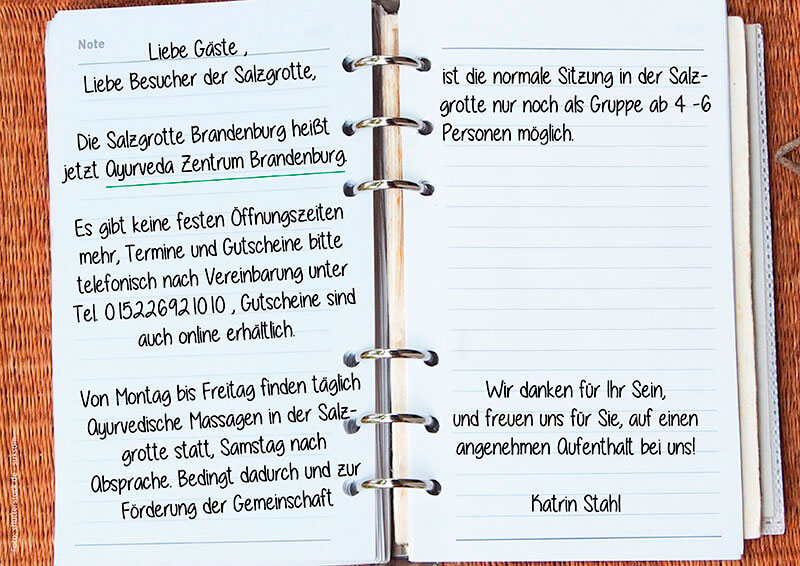 Note
Liebe Gäste ,
Liebe Besucher der Salzgrotte,
Die Salzgrotte Brandenburg heißt
jetzt Ayurveda Zentrum Brandenburg.
Es gibt keine festen Öffnungszeiten
mehr, Termine und Gutscheine bitte
telefonisch nach Vereinbarung unter
Tel. 015226921010 , Gutscheine sind
auch online erhältlich.
Von Montag bis Freitag finden täglich
Ayurvedische Massagen in der Salz-
grotte statt, Samstag nach
Absprache. Bedingt dadurch und zur
Förderung der Gemeinschaft
ist die normale Sitzung in der Salz-
grotte nur noch als Gruppe ab 4 -6
Personen möglich.
Wir danken für Ihr Sein,
und freuen uns für Sie, auf einen
angenehmen Aufenthalt bei uns!
Katrin Stahl